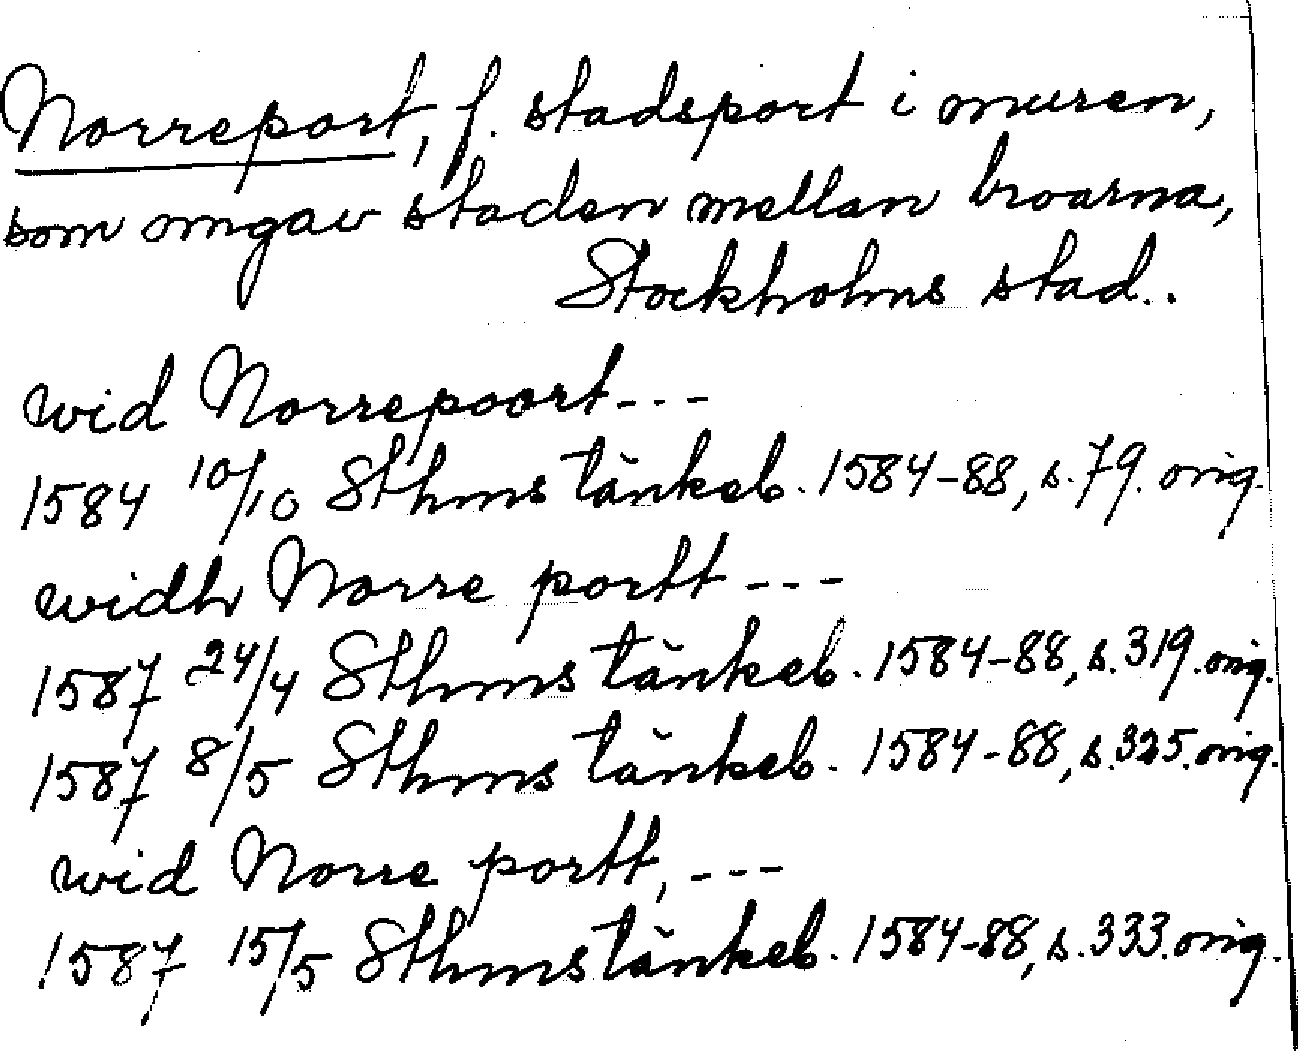 Norreport, f. stadsport i muren,
som omgav staden mellan broarna,
Stockholms stad..
wid Norrepoort---
1584 10/10 Sthms tänkeb. 1584-88, s. 79. orig.
widh Norre portt ---
1587 24/4 Sthms tänkeb. 1584-88, s. 319. orig.
1587 8/5 Sthms tänkeb. 1584-88, s. 325. orig.
wid Norre portt, ---
1587 15/5 Sthms tänkeb. 1584-88, s. 333. orig.